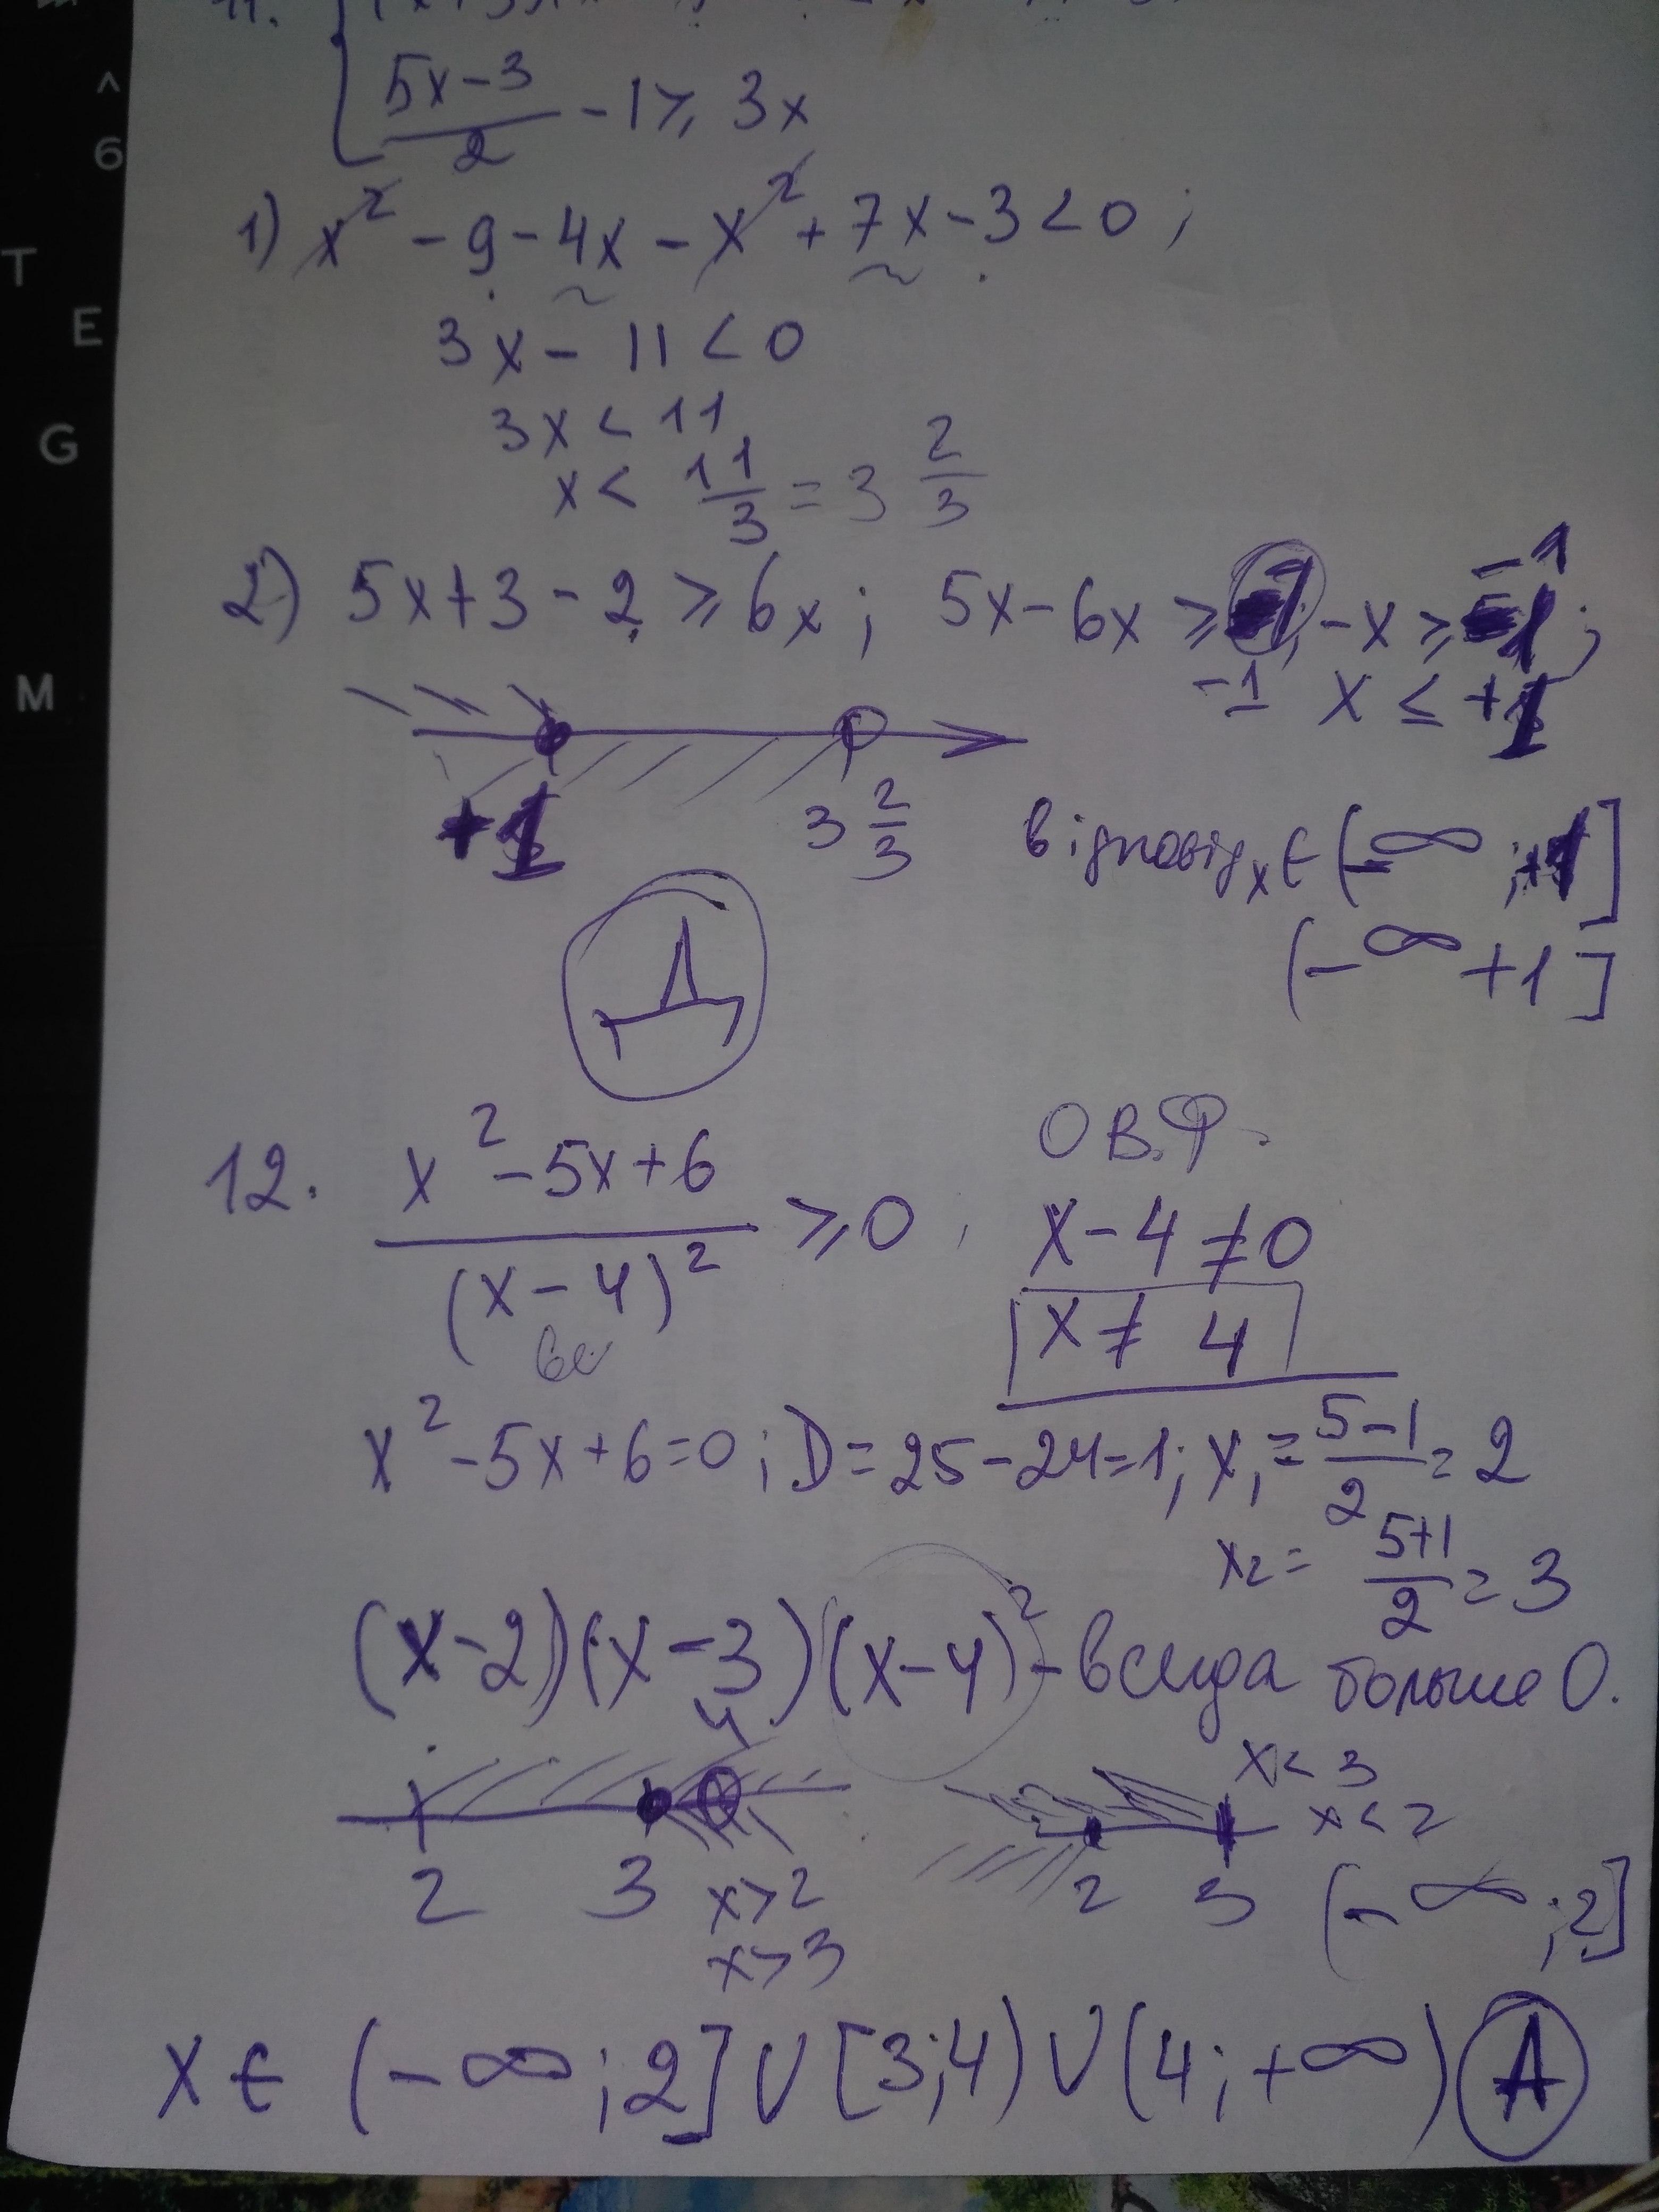 11.
5x-3
2
-1 ≥ 3x
1) x² - 9 - 4x - x² + 7x - 3 < 0 ;
3x - 11 < 0
3x < 11
x < 11/3 = 3 2/3
2) 5x+3-2 ≥ 6x ; 5x-6x ≥ -1 ; -x ≥ -1 ;
-1 x ≤ +1
+1 3 2/3
відповідь x ∈ (-∞ ; +1]
(-∞ +1]
Д
12. x²-5x+6 / (x-4)² ≥ 0
О В.Ф.
x-4 ≠ 0
x ≠ 4
x²-5x+6=0 ; D=25-24=1 ; x₁ = 5-1/2 = 2
x₂ = 5+1/2 = 3
(x-2)(x-3)(x-4)² - всегда больше 0.
4
2 3
x>2
x>3
x<3
x<2
2 3
(-∞ ; 2]
x ∈ (-∞ ; 2] ∪ [3;4) ∪ (4 ; +∞) А
^
6
T
E
G
M